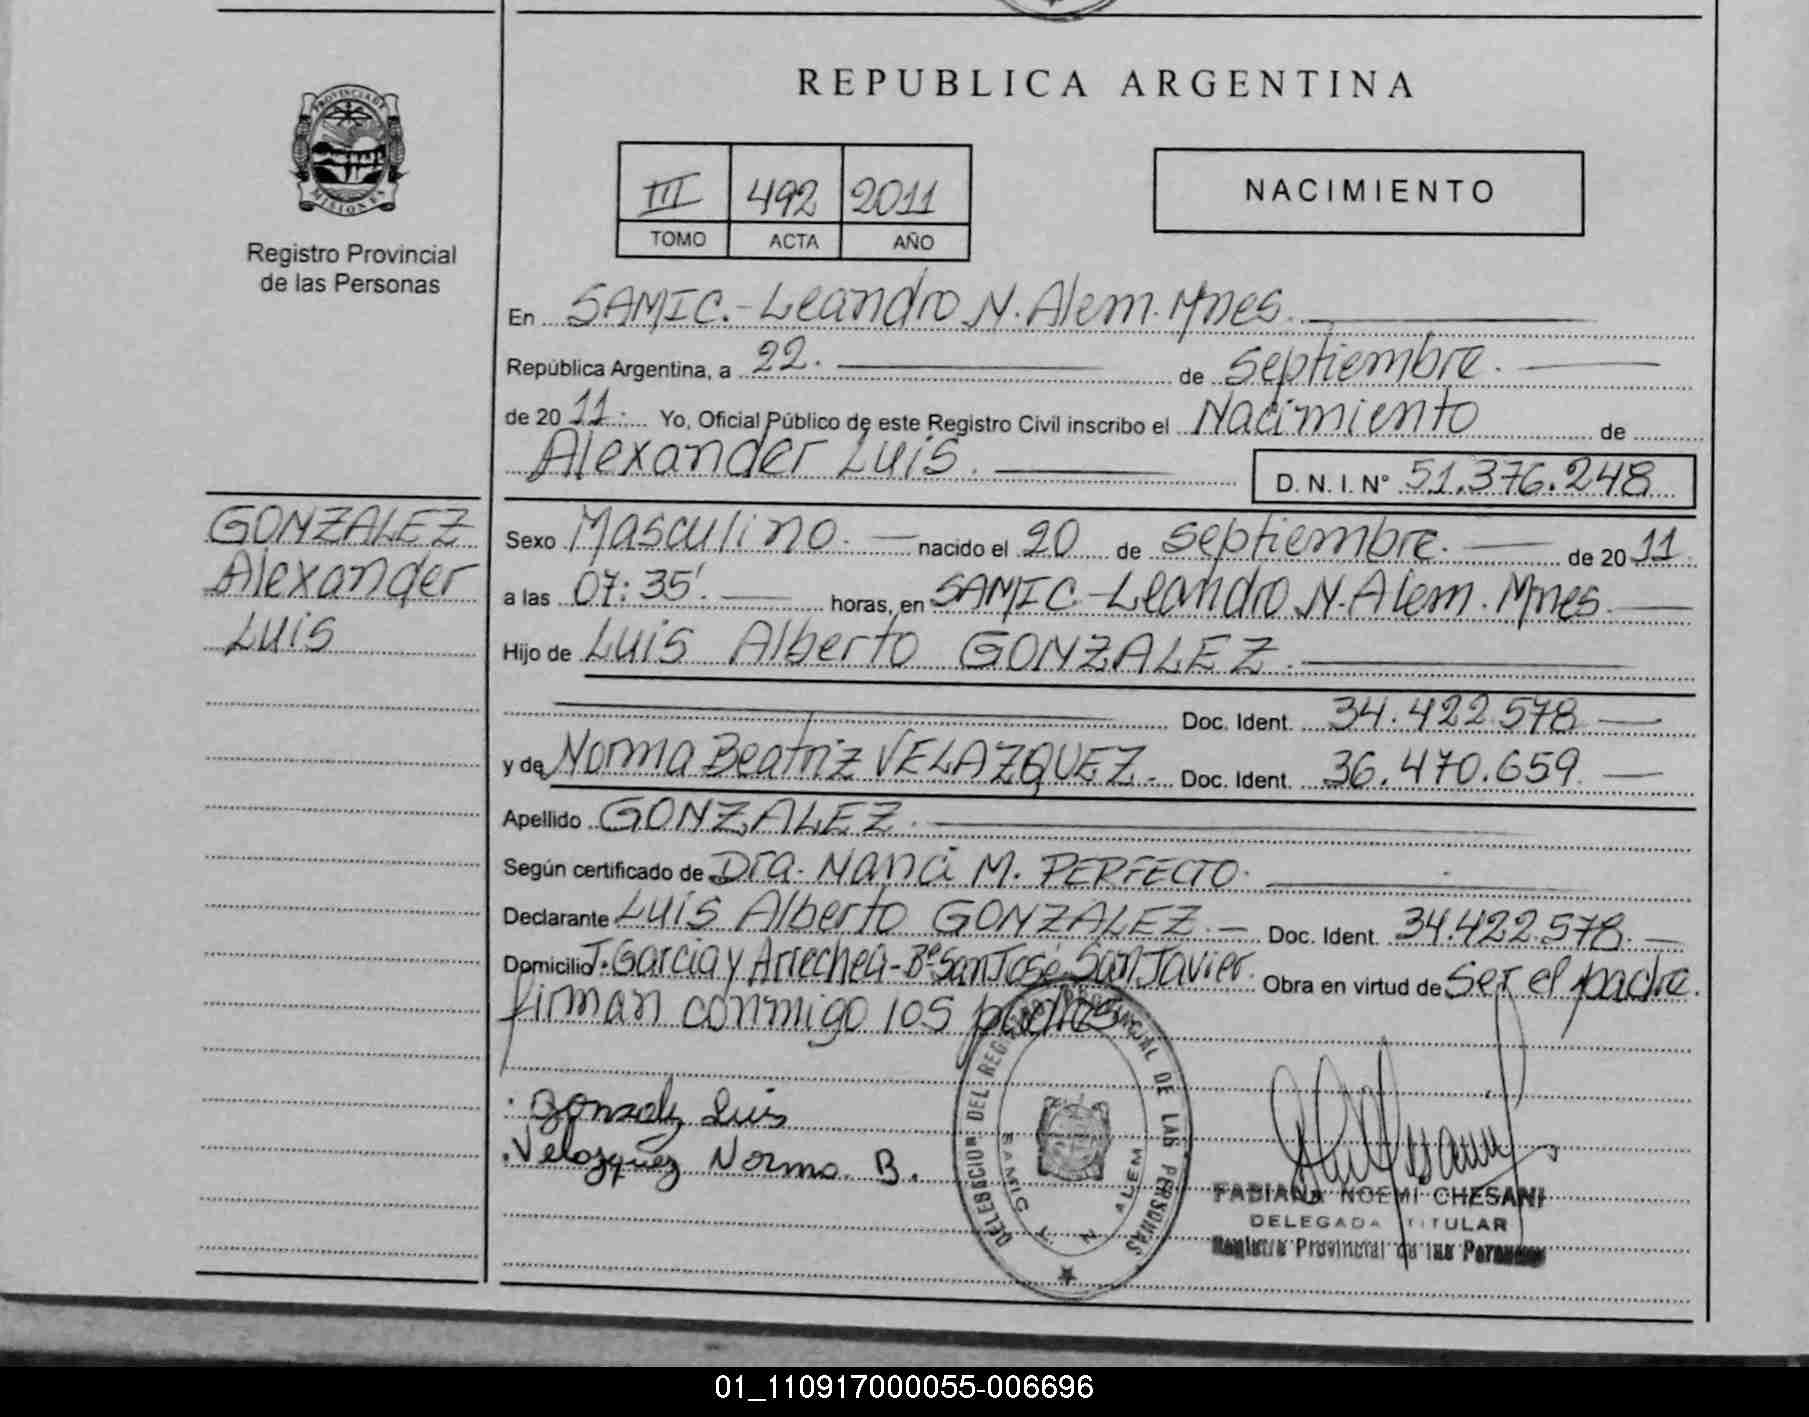 REPUBLICA ARGENTINA
PROVINCIA DE
MISIONES
Registro Provincial
de las Personas
III 492 2011
TOMO ACTA AÑO
NACIMIENTO
En SAMIC.-Leandro N. Alem. Mnes.
República Argentina, a 22. de Septiembre.
de 20 11. Yo, Oficial Público de este Registro Civil inscribo el Nacimiento de
Alexander Luis. D. N. I. N° 51.376.248
GONZALEZ
Alexander
Luis
Sexo Masculino. nacido el 20 de Septiembre. de 20 11.
a las 07:35'. horas, en SAMIC-Leandro N. Alem. Mnes.
Hijo de Luis Alberto GONZALEZ.
Doc. Ident. 34.422.578
y de Norma Beatriz VELAZQUEZ. Doc. Ident. 36.470.659
Apellido GONZALEZ.
Según certificado de Dra. Nanci M. PERFECTO.
Declarante Luis Alberto GONZALEZ. Doc. Ident. 34.422.578.
Domicilio J. Garcia y Arrechea-B° San José San Javier. Obra en virtud de Ser el padre.
firman conmigo los padres
Gonzalez Luis
Velazquez Norma B.
DELEGACION DEL REGISTRO PROVINCIAL DE LAS PERSONAS
SAMIC
N ALEM
FABIANA NOEMI CHESANI
DELEGADA TITULAR
Registro Provincial de las Personas
01_110917000055-006696